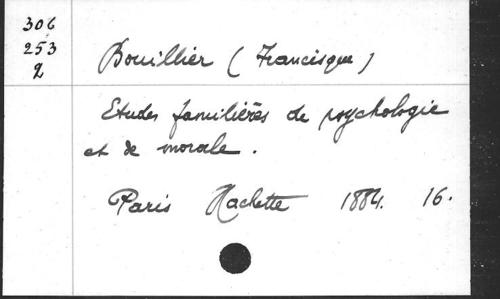 306
253
2
Bouillier (Francisque)
Etudes familières de psychologie
et de morale.
Paris Hachette 1884. 16.